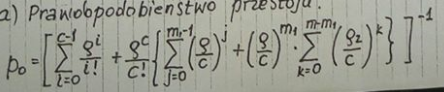 2) Prawdopodobieństwo przestoju.
p₀ = [ \sum_{i=0}^{c-1} \frac{ρ^i}{i!} + \frac{ρ^c}{c!} { \sum_{j=0}^{m_1-1} (\frac{ρ}{c})^j + (\frac{ρ}{c})^{m_1} · \sum_{k=0}^{m-m_1} (\frac{ρ_2}{c})^k } ]^{-1}